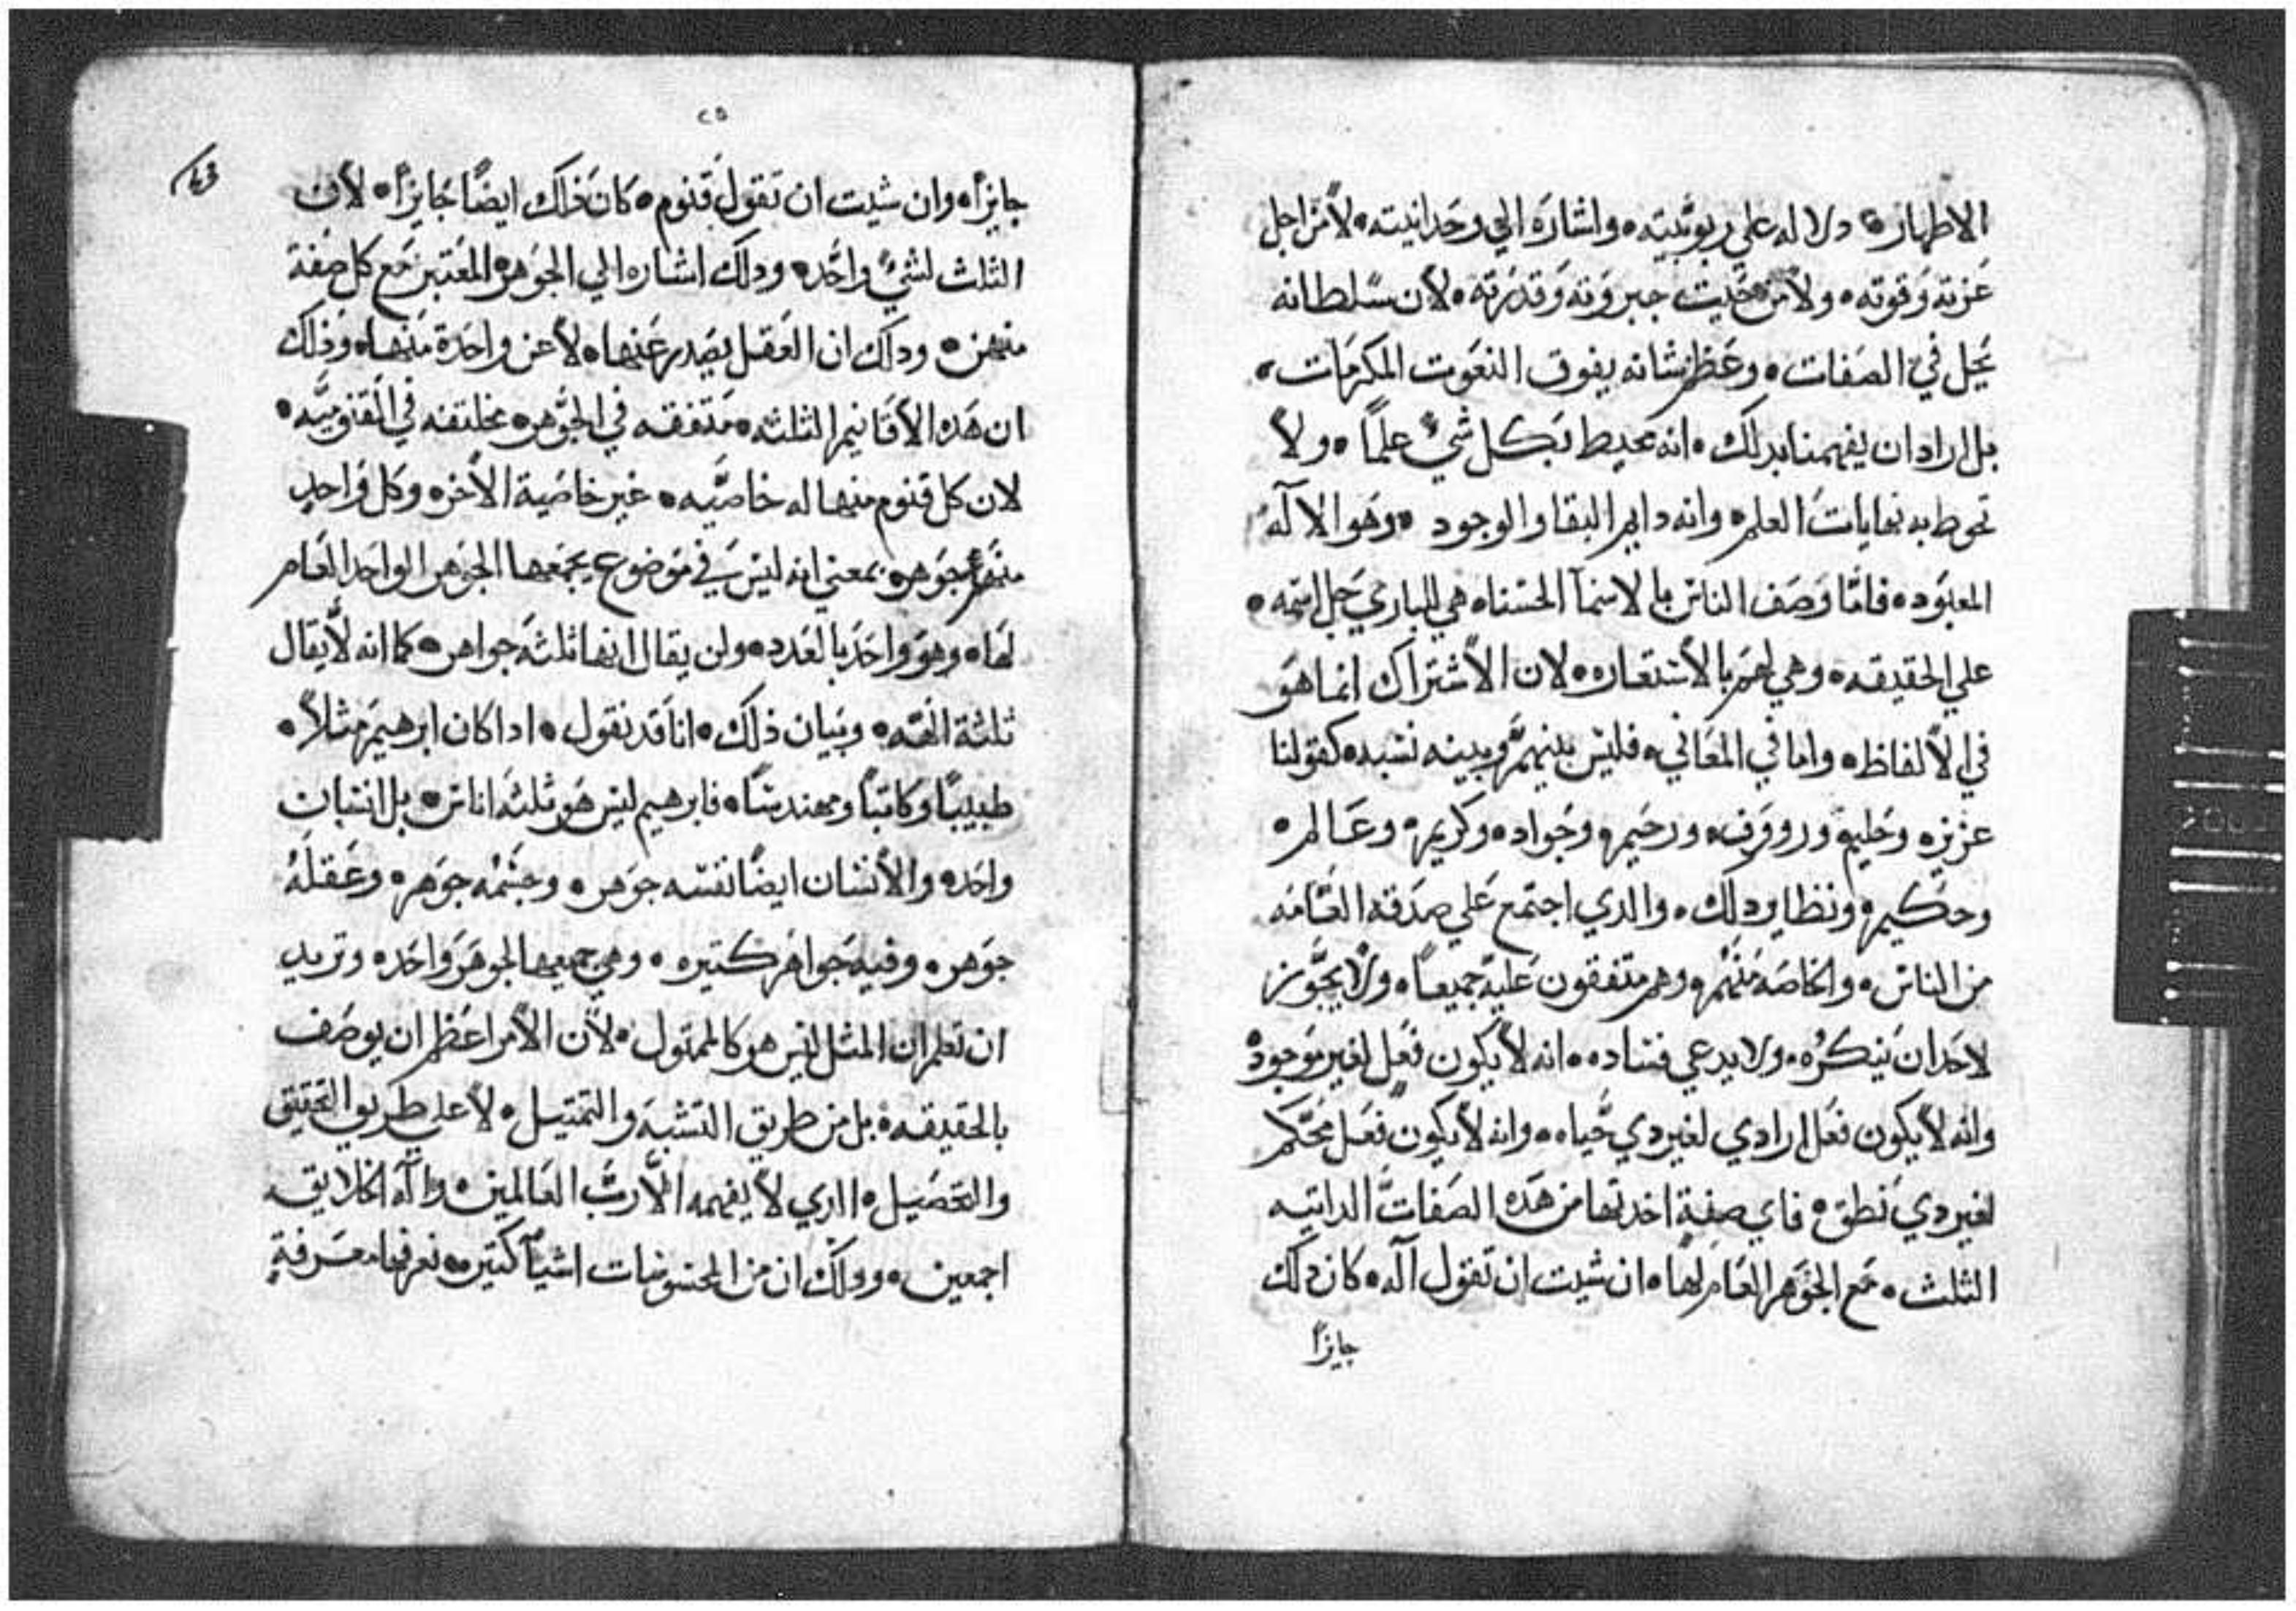 الاطهار٥ دلاله علي ربوبيته٥ واشاره الي وحدانيته٥ لا من اجل
عزته وقوته٥ ولا من حيث جبروته وقدرته٥ لان سلطانه
يجل في الصفات٥ وعظم شانه يفوق النعوت المكرمات٥
بل اراد ان يفهمنا بدلك٥ انه محيط بكل شيء علماً٥ ولا
تحوط به نهايات العلم٥ وانه دايم البقا والوجود ٥ وهو الالآه
المعبود٥ فاما وصف الناس بالاسمآ الحسنا٥ هي للباري جل اسمه٥
علي الحقيقه٥ وهي لهم بالاستعاره٥ لان الاشتراك انما هو
في الالفاظ٥ واما في المعاني٥ فليس بينهم وبينه نسبه٥ كقولنا
عزيز٥ وحليم٥ وروووف٥ ورحيم٥ وجواد٥ وكريم٥ وعالم٥
وحكيم٥ ونظاير دلك٥ والدي اجتمع علي صدقه العامه
من الناس٥ والخاصه منهم٥ وهم متفقون عليه جميعاً٥ ولا يجوز
لاحد ان ينكره٥ ولا يدعي فساده٥ انه لا يكون فعل لغير موجود
وانه لا يكون فعل ارادي لغير دي حياه٥ وانه لا يكون فعل محكم
لغير دي نطق٥ فاي صفة اخدتها من هده الصفات الداتيه
الثلث٥ مع الجوهر العام لها٥ ان شيت ان تقول آلة٥ كان دلك
جايزاً
٢٥
جايزاً٥ وان شيت ان تقول قنوم٥ كان ذلك ايضاً جايزاً٥ لان
الثلث لشيء واحد٥ ودلك اشاره الي الجوهر المعتبر مع كل صفة
منهن٥ ودلك ان العقل يصدر عنها٥ لا عن واحدة منها٥ وذلك
ان هده الاقانيم الثلثه٥ متفقه في الجوهر٥ مختلفه في القنوميه٥
لان كل قنوم منها له خاصيه٥ غير خاصية الاخر٥ وكل واحد
منهم جوهر٥ بمعني انه ليس في موضوع يجمعها الجوهر الواحد العام
لها٥ وهو واحد بالعدد٥ ولن يقال انها ثلثة جواهر٥ كما انه لا يقال
ثلثة الهه٥ وبيان ذلك٥ انا قد نقول٥ ادا كان ابرهيم مثلاً٥
طبيباً وكاتباً ومهندساً٥ فابرهيم ليس هو ثلثه اناس٥ بل انسان
واحد٥ والانسان ايضاً نفسه جوهر٥ وجسمه جوهر٥ وعقله
جوهر٥ وفيه جواهر كتيره٥ وهي جميعها لجوهر واحد٥ وتريد
ان تعلم ان المثل ليس هو كالممتول٥ لان الامر اعظم ان يوصف
بالحقيقه٥ بل من طريق التشبه والتمتيل٥ لا علي طريق التحقيق
والتحصيل٥ الدي لا يفهمه الا رب العالمين٥ وآله الخلايق
اجمعين٥ ودلك ان من المحسوسات اشيآ كتيره٥ نعرفها معرفة